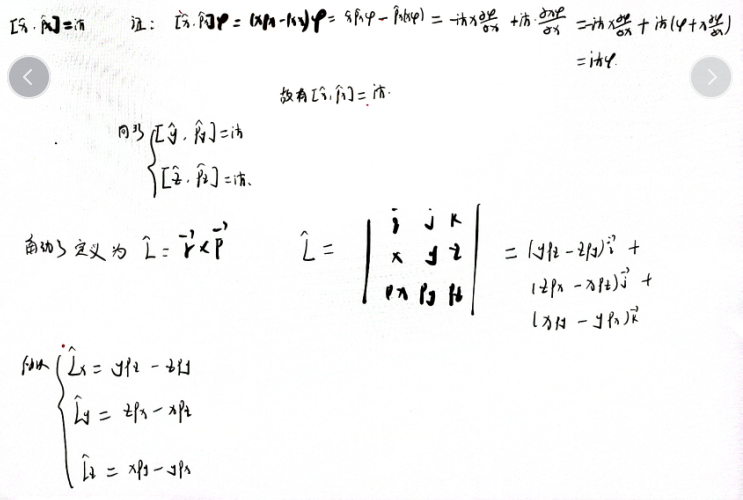 [x̂, p̂x] = iħ 证: [x̂, p̂x]φ = (xpx - pxx)φ = x̂p̂xφ - p̂x(xφ) = -iħx ∂φ/∂x + iħ ∂xφ/∂x = -iħx ∂φ/∂x + iħ(φ + x ∂φ/∂x)
= iħφ.
故有[x̂, p̂x] = iħ.
同理 { [ŷ, p̂y] = iħ
[ẑ, p̂z] = iħ.
角动量定义为 L̂ = r⃗ × p⃗ L̂ = | i j k
x y z
px py pz | = (ypz - zpy)i⃗ +
(zpx - xpz)j⃗ +
(xpy - ypx)k⃗
所以 { L̂x = ypz - zpy
L̂y = zpx - xpz
L̂z = xpy - ypx